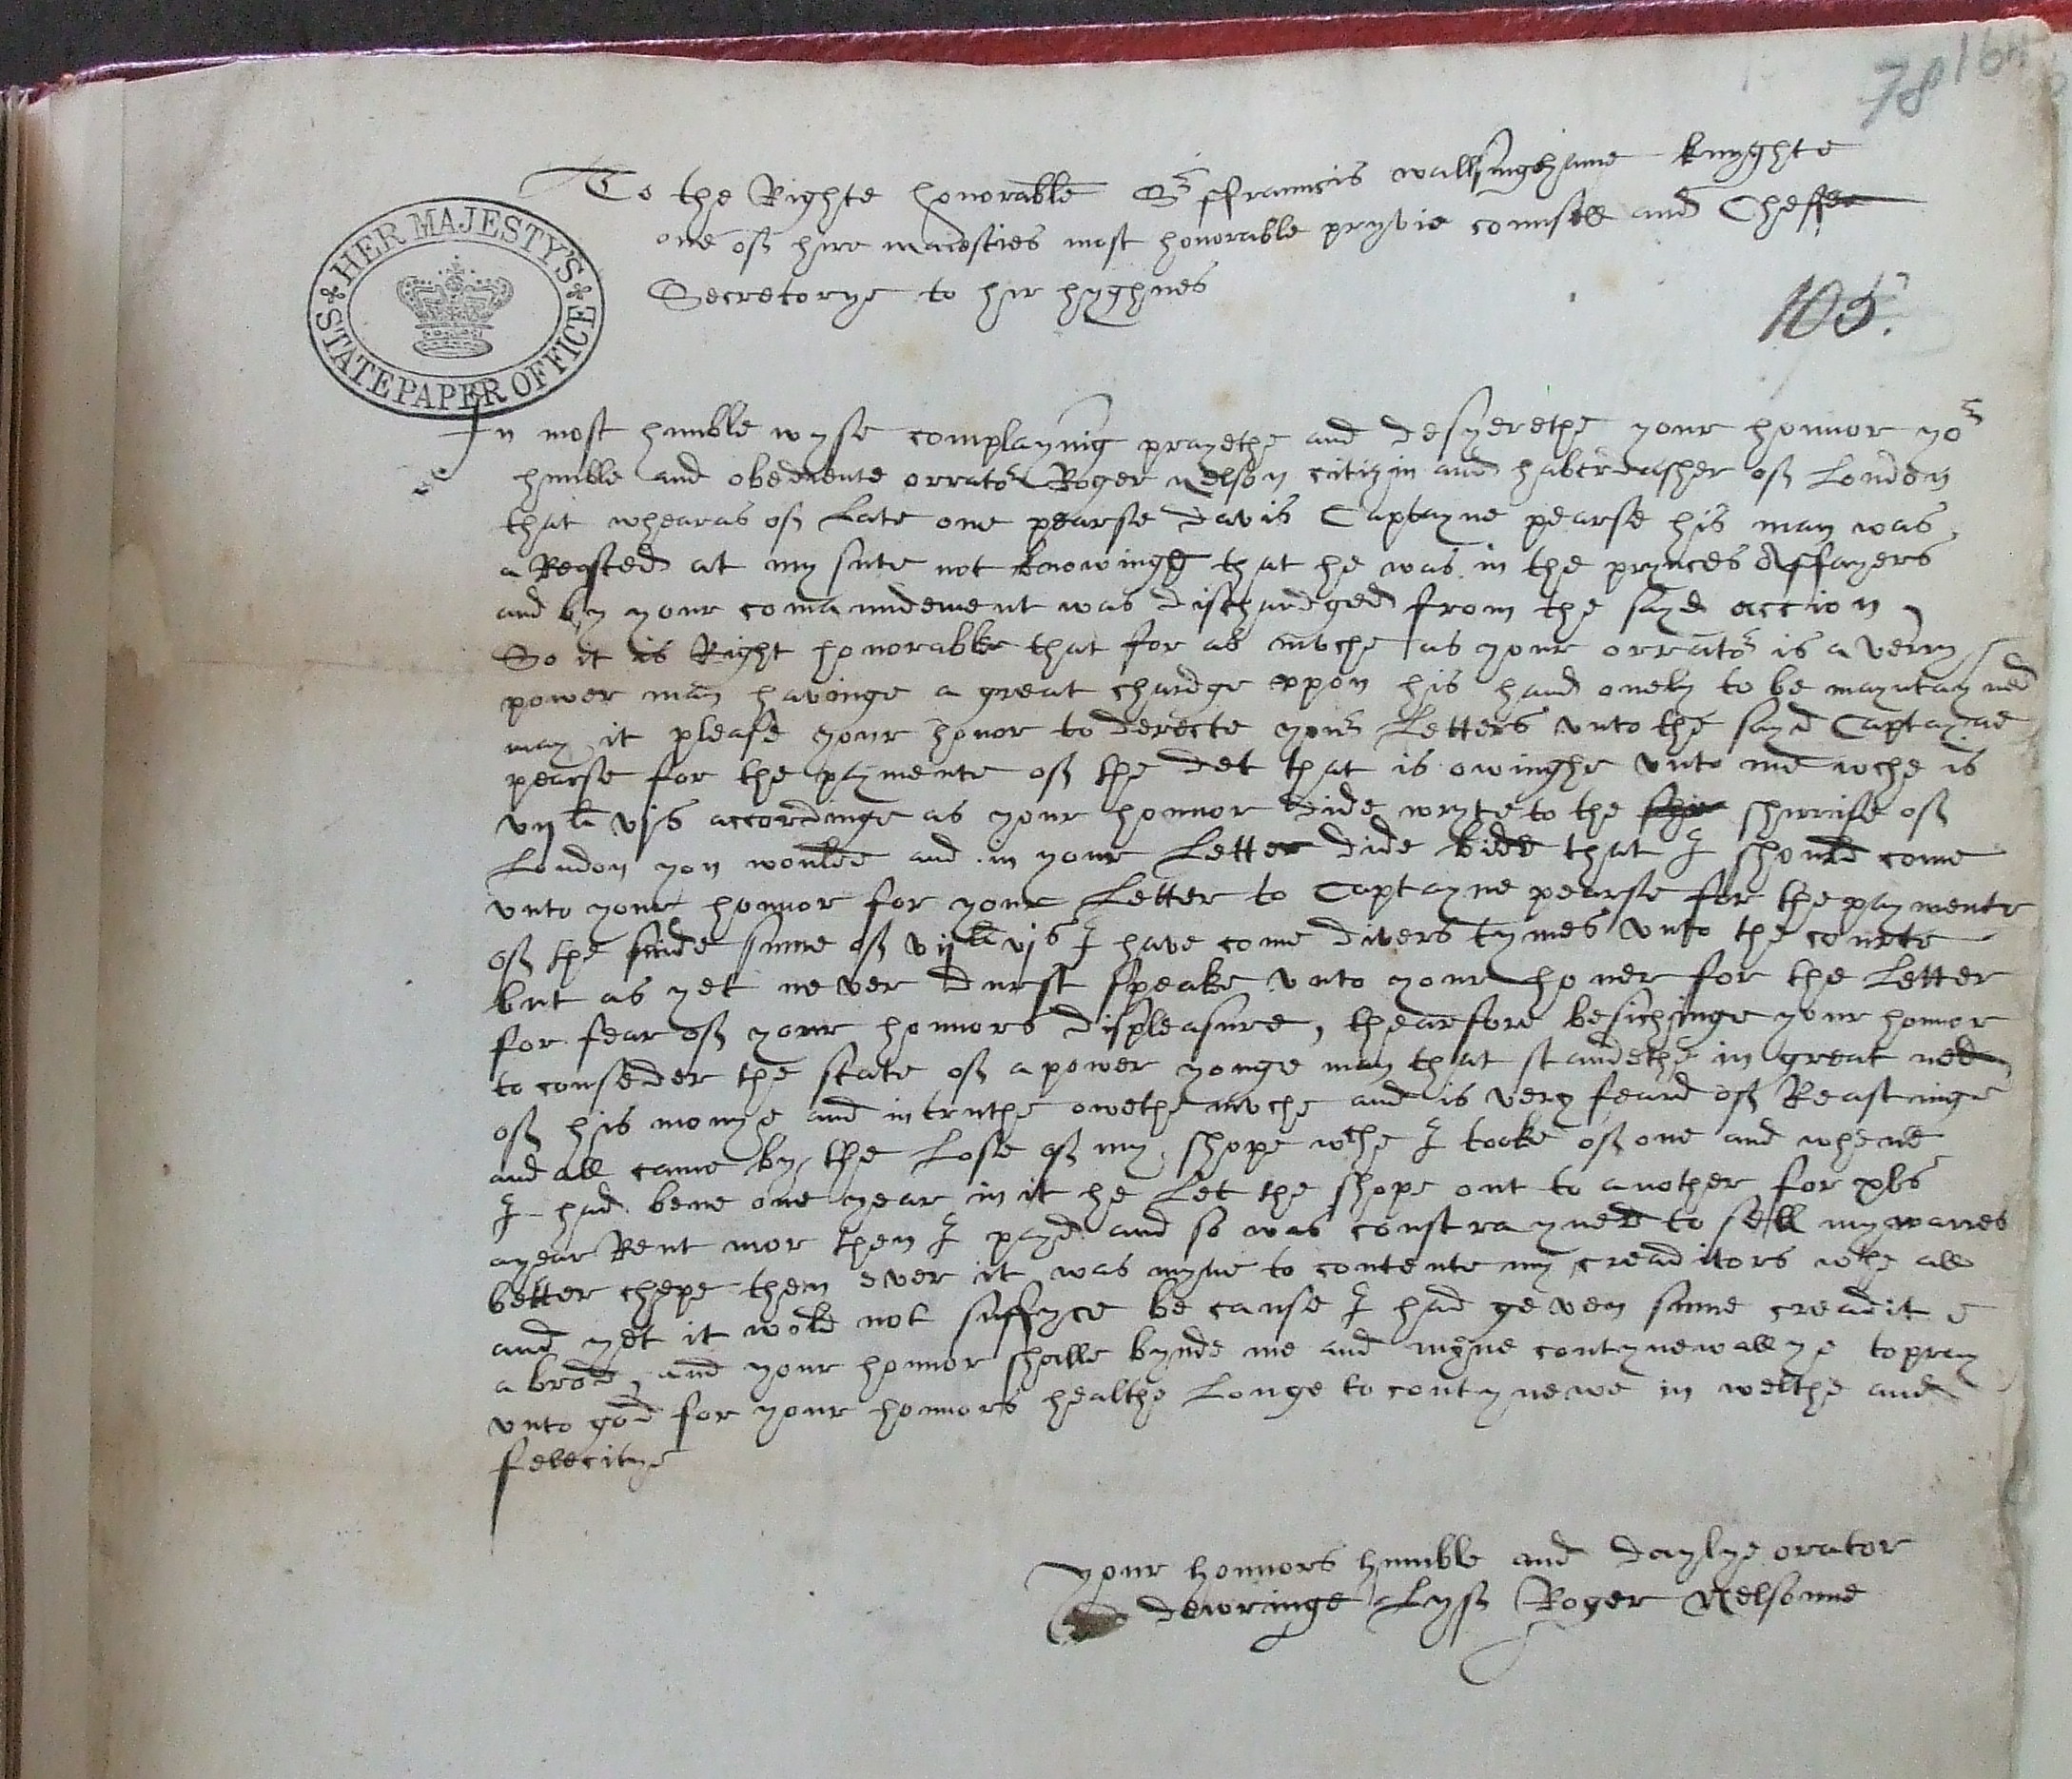 78 164
To the Righte honorable Sr ffranncis wallsinghame knyghte
one of hire maiesties most honorable pryvie counsell and Cheffer
Secretorye to hir hyghnes
105.
HER MAJESTY'S STATE PAPER OFFICE
In most humble wyse complaynig prayethe and desyerethe your honnor yor
humble and obediente orrator Roger nelson citizin and haberdasher of London
that whearas of Late one pearse davis Captayne pearse his man was
a Reasted at my sute not knowinge that he was in the prynces Affayers
and by your comaundement was dischardged from the sayd accion
So it is Right honorable that for as mvche as your orrator is a verry
power man havinge a great chardge vppon his hand onely to be mayntayned
may it please your honor to derecte your Letters vnto the sayd Captayne
pearse for the paymente of the det that is owinghe vnto me wche is
vijli vjs accordinge as your honnor dide wryte to the shirrife of
London you woulde and in your Letter dide bide that I should come
vnto your honnor for your Letter to Captayne pearse for the paymente
of the saide summe of vijli vjs I have come divers tymes vnto the courte
but as yet never durst speake vnto your honer for the Letter
for fear of your honnors displeasure, thearfore besichinge your honnor
to conseder the state of a power yonge man that standethe in great ned
of his monye and in truthe owethe mvche and is very feard of Reastinge
and all came by the Lose of my shope wche I tooke of one and whene
I had bene one year in it he Let the shope out to another for xls
a year Rent mor then I payd and so was constrayned to sell my warres
better chepe then ever it was myne to contente my creaditors wthe all
and yet it wold not suffyce be cause I had geven sume creadit
a brode, and your honnor shalle bynde me and myne contynewallye to pray
vnto god for your honnors healthe Longe to contynewe in welthe and
felecitye
your honnors humble and daylye orator
dewringe Lyf Roger Nelsonne